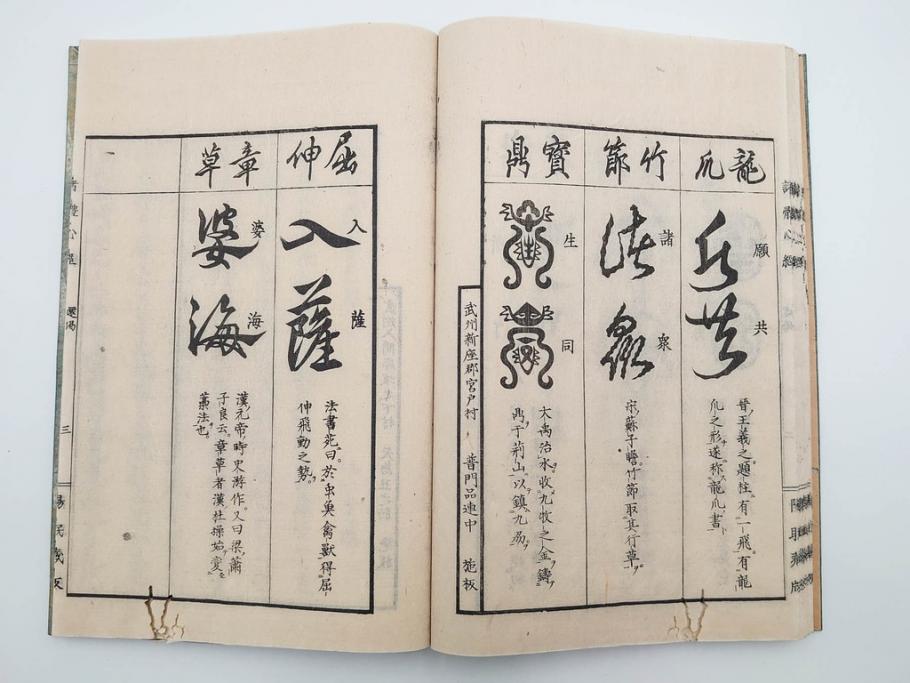 龍爪
願共
願
共
晉王羲之題柱有一飛有龍
爪之形遂称龍爪書
竹節
諸衆
諸
衆
宋蘇子瞻竹節取其行草
寶鼎
生同
生
同
大禹治水收九牧之金鑄
鼎于荊山以鎮九
武州新座郡宮戸村 普門品連中 施板
屈伸
入薩
入
薩
法書苑曰於虫魚禽獣得屈
伸飛動之勢
章草
婆海
婆
海
漢元帝時史游作又曰梁蕭
子良云章草者漢杜操始変
藁法也
三